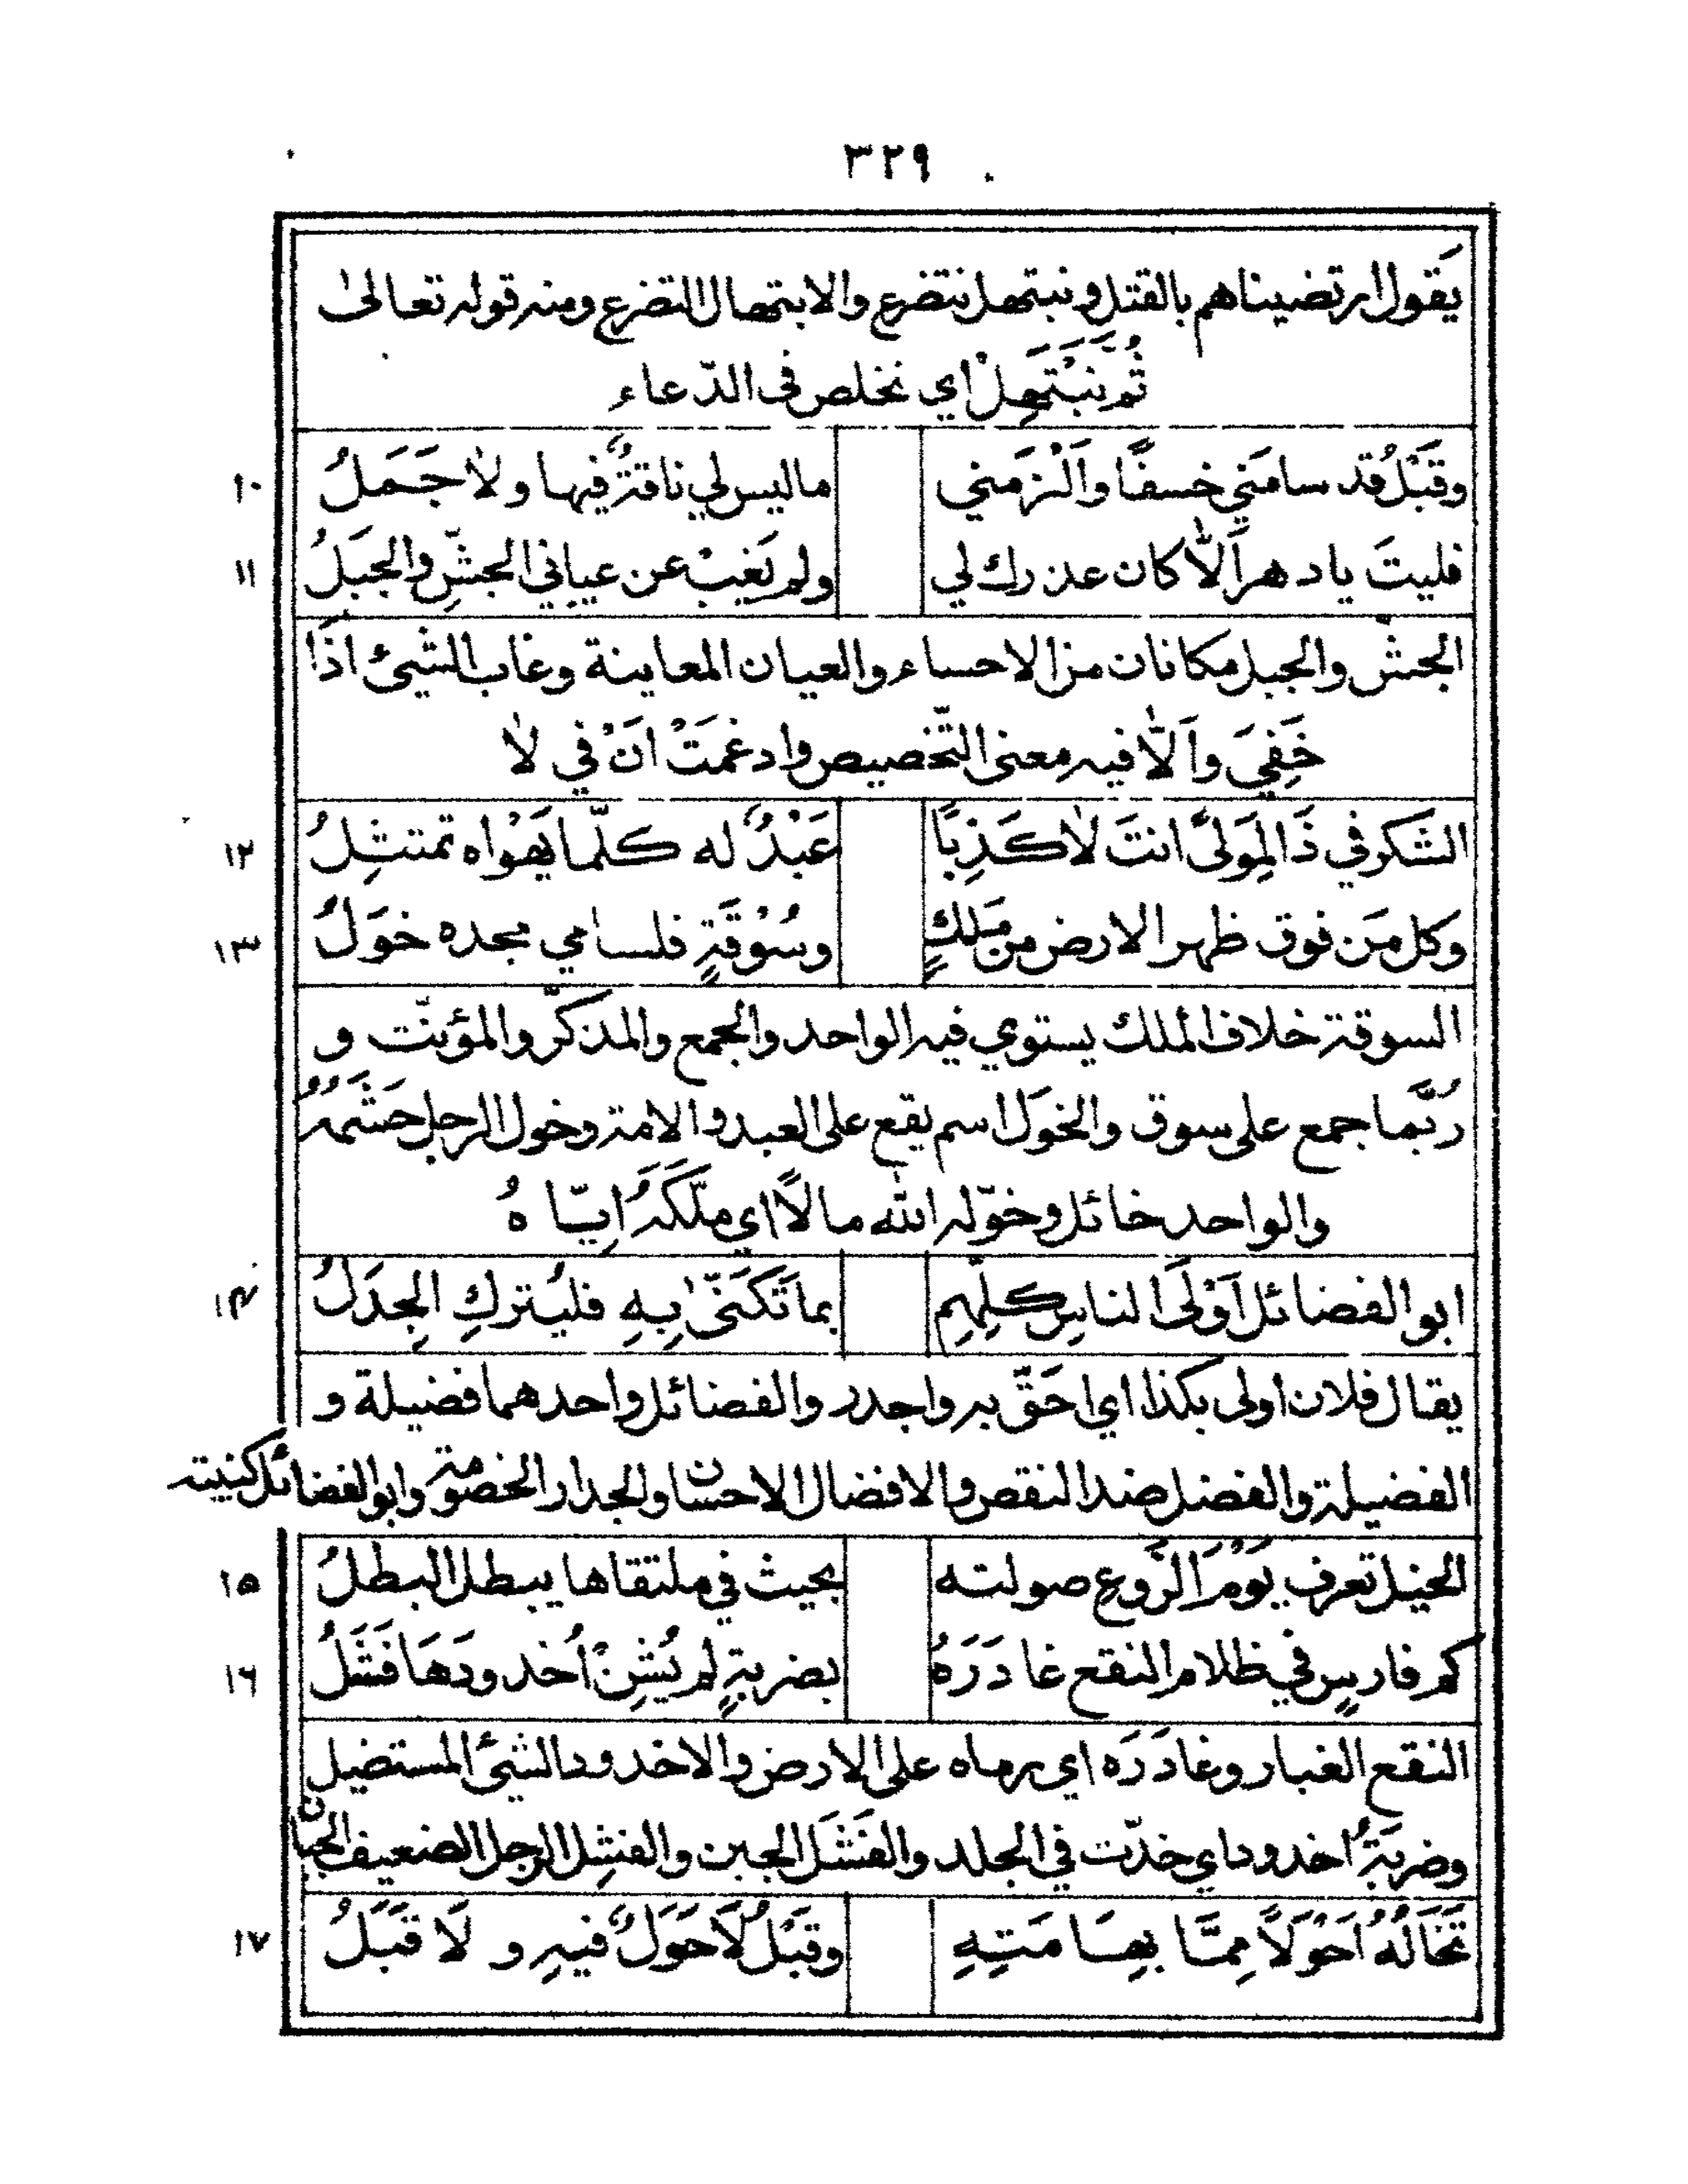 ٣٢٩
يَقول ارتضيناهم بالقتل و نبتهل نتضرع والابتهال التضرع ومنه قوله تعالىٰ
ثُمَّ نَبْتَهِلْ اي نخلص في الدّعاء
وقَبْلُ قد سامَني خسفًا وَاَلْزَمني ماليس لي ناقةٌ فيها ولاٰ جَمَلُ ١٠
فليتَ يا دهر اَلاّ كان عذرك لي ولم تَغِبْ عن عياني الجشّ والجبَلُ ١١
الجشّ والجبل مكانان من الاحساء والعيان المعاينة وغاب الشيئ اذَا
خَفِيَ واَلاّ فيه معنى التّخصيص وادغمَتْ انَ في لاٰ
الشكر في ذَا لِمَولىً انتَ لاٰ كَذِبًا عَبْدٌ له كلّما يَهْواه تمتثِلُ ١٢
وكل مَن فوق ظهر الارض من مَلكٍ وسُوْقَةٍ فلسامي مجده خوَلُ ١٣
السوقة خلاف الملك يستوي فيه الواحد والجمع والمذكّر والمؤنّث و
رُبَّما جمع على سوق والخوَل اسم يقع على العبد والامة وخول الرجل حَشَمُهُ
والواحد خائل وخوّله الله مالاً اي ملّكَهُ اِيّاهُ
ابو الفضائل اَوْلَى الناسِ كلِّهِم بما تَكَنّىٰ بِهِ فليُتركِ الجِدَلُ ١٤
يقال فلان اولى بكذا اي احَقّ به واجدر والفضائل واحدهما فضيلة و
الفضيلة والفضل ضد النقص والافضال الاحسان والجدار الخصومة وابو الفضائل كنيته
الخيل تعرف يَوْمَ الرَّوعِ صولته بحيث في ملتقاها يبطل البطلُ ١٥
كم فارسٍ في ظلام النقع غادَرَهُ بضربةٍ لم يُشِنْ اُخدودَهَا فَشَلُ ١٦
النقع الغبار وغادَرَه اي رماه على الارض والاخدود الشئ المستضيل
وضربَةٌ اخدود اي خدّت في الجلد والفَشَل الجبن والفشِل الرجل الضعيف الجبان
تَخَالُهُ اَحْوَلاً مِمَّا بِهَا مَتِهِ وقَبْلُ لاَ حَوَلٌ فيهِ و لاَ قَبَلُ ١٧